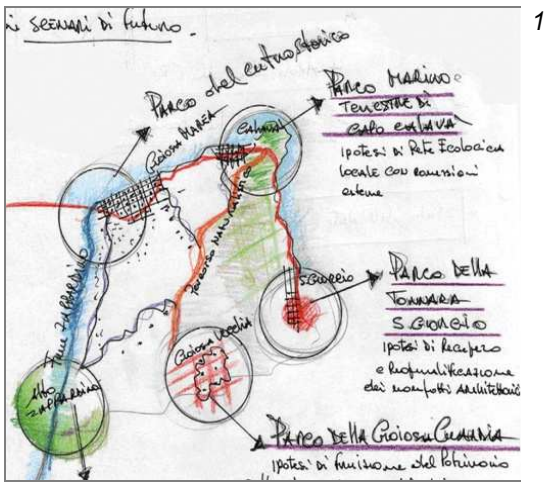 SCENARI DI FUTURO.
PARCO del centro storico
GIOIOSA MAREA
CALAVÀ
PARCO MARINO e
TERRESTRE DI
CAPO CALAVÀ
ipotesi di Rete Ecologica
locale con connessioni
esterne
Percorso Naturalistico
Fiume ZAPPARDINO
S.GIORGIO
PARCO DELLA
TONNARA
S. GIORGIO
ipotesi di Recupero
e Rifunzionalizzazione
dei manufatti Architettonici
GIOIOSA VECCHIA
Alto
ZAPPARDINO
PARCO DELLA GIOIOSA GUARDIA
ipotesi di fruizione del Patrimonio
1